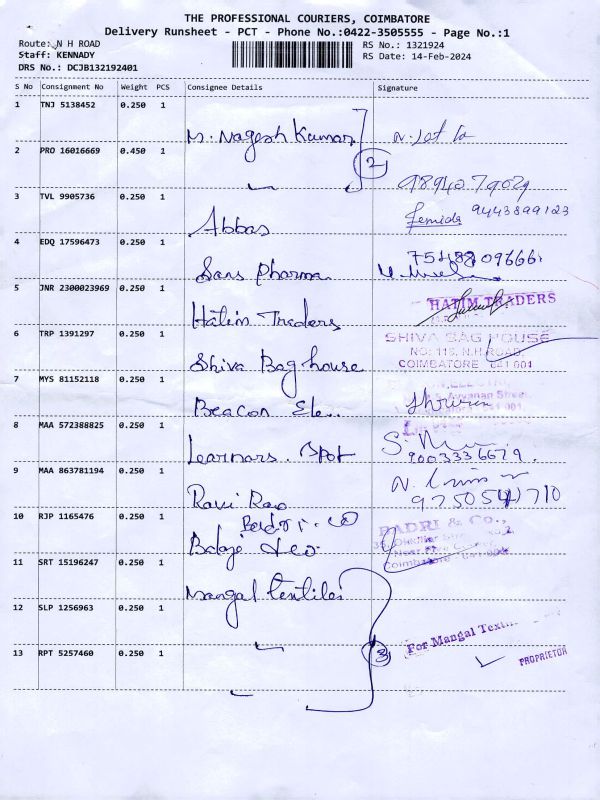 THE PROFESSIONAL COURIERS, COIMBATORE
Delivery Runsheet - PCT - Phone No.:0422-3505555 - Page No.:1
Route: N H ROAD RS No.: 1321924
Staff: KENNADY RS Date: 14-Feb-2024
DRS No.: DCJB132192401
S No Consignment No Weight PCS Consignee Details Signature
1 TNJ 5138452 0.250 1
M. Nagesh Kumar
2 PRO 16016669 0.450 1
2
3 TVL 9905736 0.250 1
Abbas 9443899123
4 EDQ 17596473 0.250 1
Sans Pharma
5 JNR 2300023969 0.250 1
Hatim Traders HATIM TRADERS
6 TRP 1391297 0.250 1
Shiva Bag house SHIVA BAG HOUSE
NO: 116, N.H.ROAD,
COIMBATORE - 641 001
7 MYS 81152118 0.250 1
Beacon Ele.
8 MAA 572388825 0.250 1
Learnars. Spot 9003336679.
9 MAA 863781194 0.250 1
Ravi Rao
10 RJP 1165476 0.250 1
BADRI & Co.,
11 SRT 15196247 0.250 1
Mangal Textiles
12 SLP 1256963 0.250 1
For Mangal
13 RPT 5257460 0.250 1
3 PROPRIETOR